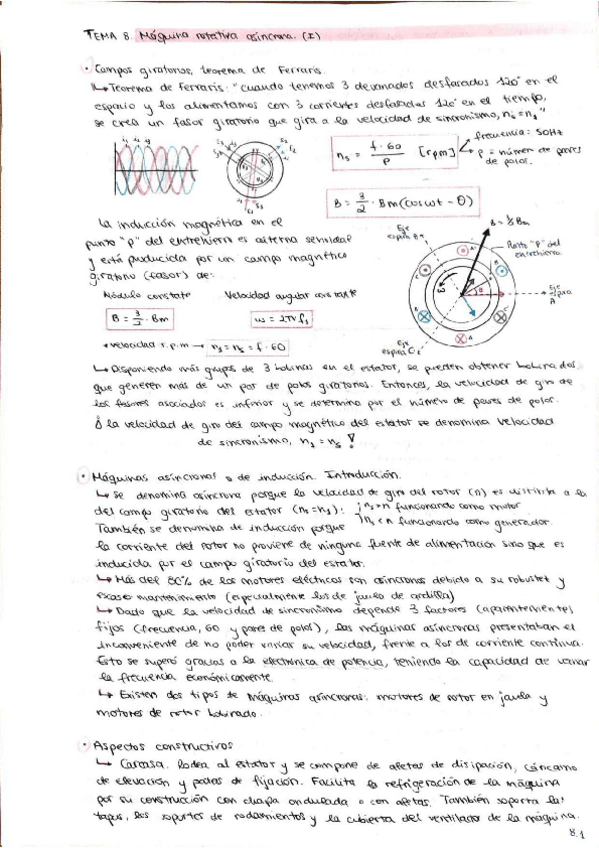 TEMA 8. Máquina rotativa asíncrona. (I)
· Campos giratorios, teorema de Ferraris.
↳ Teorema de Ferraris: "cuando tenemos 3 devanados desfasados 120° en el
espacio y los alimentamos con 3 corrientes desfasadas 120° en el tiempo,
se crea un fasor giratorio que gira a la velocidad de sincronismo, n₁ = ns"
i₁ i₂ i₃
ns = f · 60 / P [rpm]
frecuencia: 50Hz
p = número de pares
de polos.
B = 3/2 · Bm (cos ωt - θ)
La inducción magnética en el
punto "p" del entrehierro es alterna senoidal
y está producida por un campo magnético
giratorio (fasor) de:
Módulo constate Velocidad angular constante
B = 3/2 · Bm ω = 2πf₁
* velocidad r.p.m → n₁ = ns = f · 60
Eje
espira B
B = 3/2 Bm
Punto "P" del
entrehierro
Eje
espira
A
Eje
espira C
↳ Disponiendo más grupos de 3 bobinas en el estator, se pueden obtener bobinados
que generen más de un par de polos giratorios. Entonces, la velocidad de giro de
los fasores asociados es inferior y se determina por el número de pares de polos.
¡ la velocidad de giro del campo magnético del estator se denomina velocidad
de sincronismo, n₁ = ns !
· Máquinas asíncronas o de inducción. Introducción.
↳ Se denomina asíncrona porque la velocidad de giro del rotor (n) es distinta a la
del campo giratorio del estator (ns = n₁): ns > n funcionando como motor
También se denomina de inducción porque ns < n funcionando como generador.
la corriente del rotor no proviene de ninguna fuente de alimentación sino que es
inducida por el campo giratorio del estator.
↳ Más del 80% de los motores eléctricos son asíncronos debido a su robustez y
escaso mantenimiento (especialmente los de jaula de ardilla)
↳ Dado que la velocidad de sincronismo depende 3 factores (aparentemente)
fijos (frecuencia, 60 y pares de polos), las máquinas asíncronas presentaban el
inconveniente de no poder variar su velocidad, frente a los de corriente continua.
Esto se superó gracias a la electrónica de potencia, teniendo la capacidad de variar
la frecuencia económicamente.
↳ Existen dos tipos de máquinas asíncronas: motores de rotor en jaula y
motores de rotor bobinado.
· Aspectos constructivos
↳ Carcasa. Rodea al estator y se compone de aletas de disipación, cáncamo
de elevación y patas de fijación. Facilita la refrigeración de la máquina
por su construcción con chapa ondulada o con aletas. También soporta las
tapas, los soportes de rodamientos y la cubierta del ventilador de la máquina.
8.1